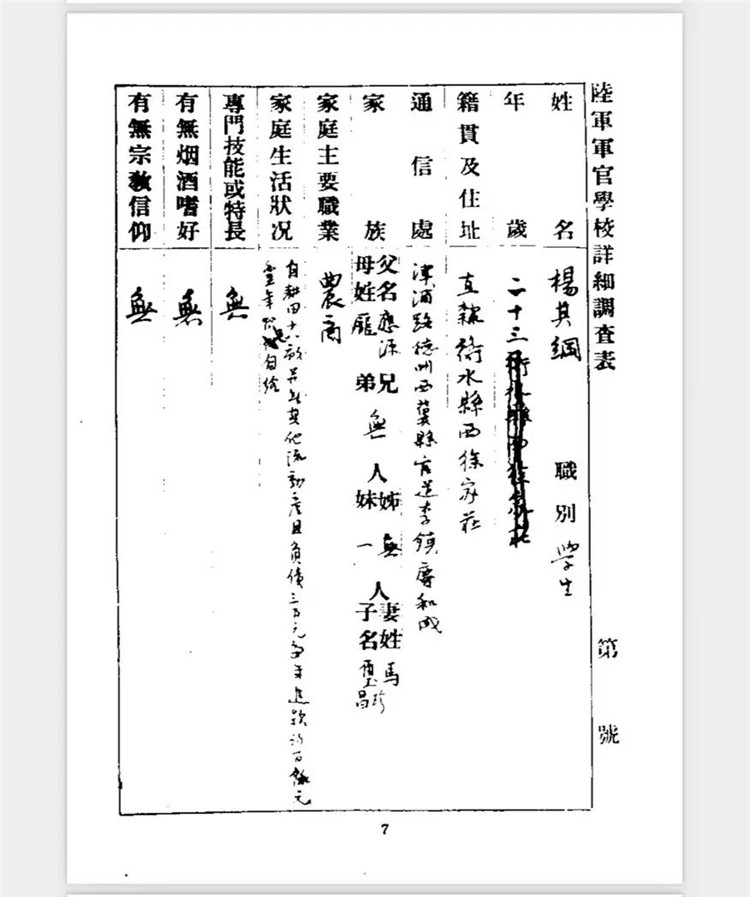 陸軍軍官學校詳細調查表
第 號
姓名 楊其綱 職別 學生
年歲 二十三
籍貫及住址 直隸衡水縣西徐家莊
通信處 津浦路德州西冀縣官道李鎮 和成
家族 父名應源 兄 無 人 姊 無 人 妻姓馬
母姓龐 弟 妹 一 子名璽昌
家庭主要職業 農商
家庭生活狀况 自耕田十六畝並無其他流動產且負債三百元每年進款約百餘元
豊年 自給
專門技能或特長 無
有無烟酒嗜好 無
有無宗教信仰 無
7